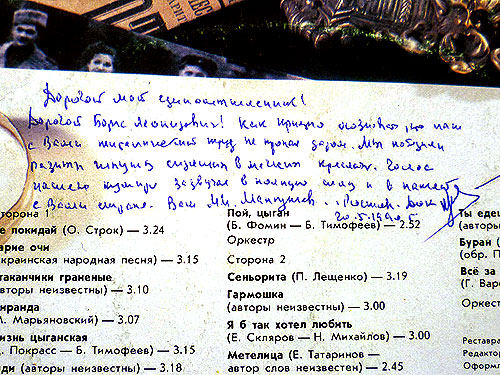 Дорогой мой единомышленник!
Дорогой Борис Леонидович! Как приятно осознавать, что наш
с Вами титанический труд не пропал даром. Мы победили
сидящих в мягких креслах. Голос
нашего кумира зазвучал в полную силу и в нашей
с Вами стране. Ваш
20.5.1990 г.
торона 1
е покидай (О. Строк) — 3.24
арие очи
краинская народная песня) — 3.15
таканчики граненые
авторы неизвестны) — 3.10
иранда
М. Марьяновский) — 3.07
изнь цыганская
Д. Покрасс — Б. Тимофеев) — 3.15
ди (авторы неизвестны) — 3.18
Пой, цыган
(Б. Фомин — Б. Тимофеев) — 2.52
Оркестр
Сторона 2
Сеньорита (П. Лещенко) — 3.19
Гармошка
(авторы неизвестны) — 3.00
Я б так хотел любить
(Е. Скляров — Н. Михайлов) — 3.00
Метелица (Е. Татаринов —
автор слов неизвестен) — 2.45
Ты едеш
(авторы
Буран (
(обр. П
Всё за
(Г. Варс
Оркест
Реставра
Редактор
Оформл